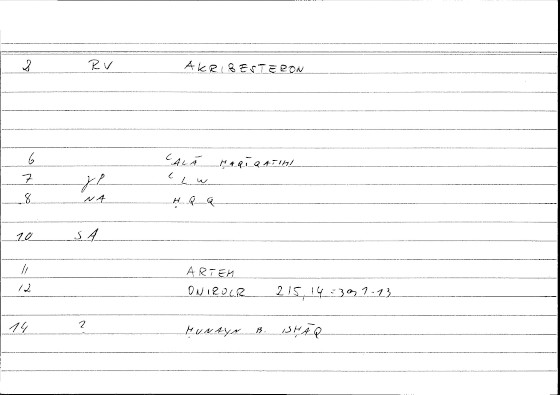 8 RV AKRIBESTERON
6 ʿALĀ ḤAQĪQATIHI
7 γP ʿLW
8 NA ḤQQ
10 SA
11 ARTEM
12 ONIROCR 215,14
14 ? ḤUNAYN B. ISḤĀQ